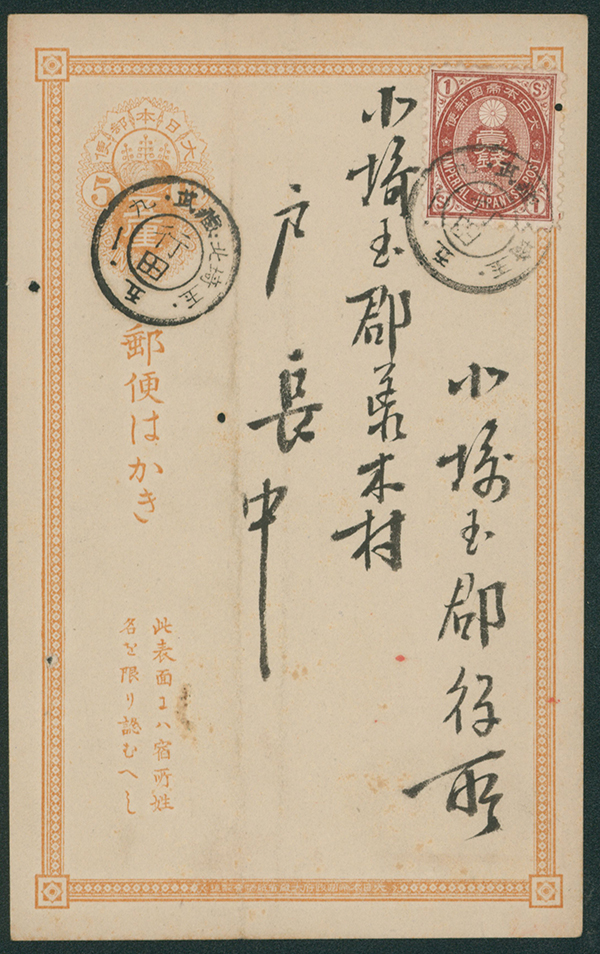 大日本帝國郵便
1 S
IMPERIAL JAPANESE POST
大日本郵便
5
武蔵・北埼玉・
行田
九・一・五
郵便はかき
此表面ニハ宿所姓
名を限り認むへし
埼玉郡
木村
戸長中
埼玉郡役所